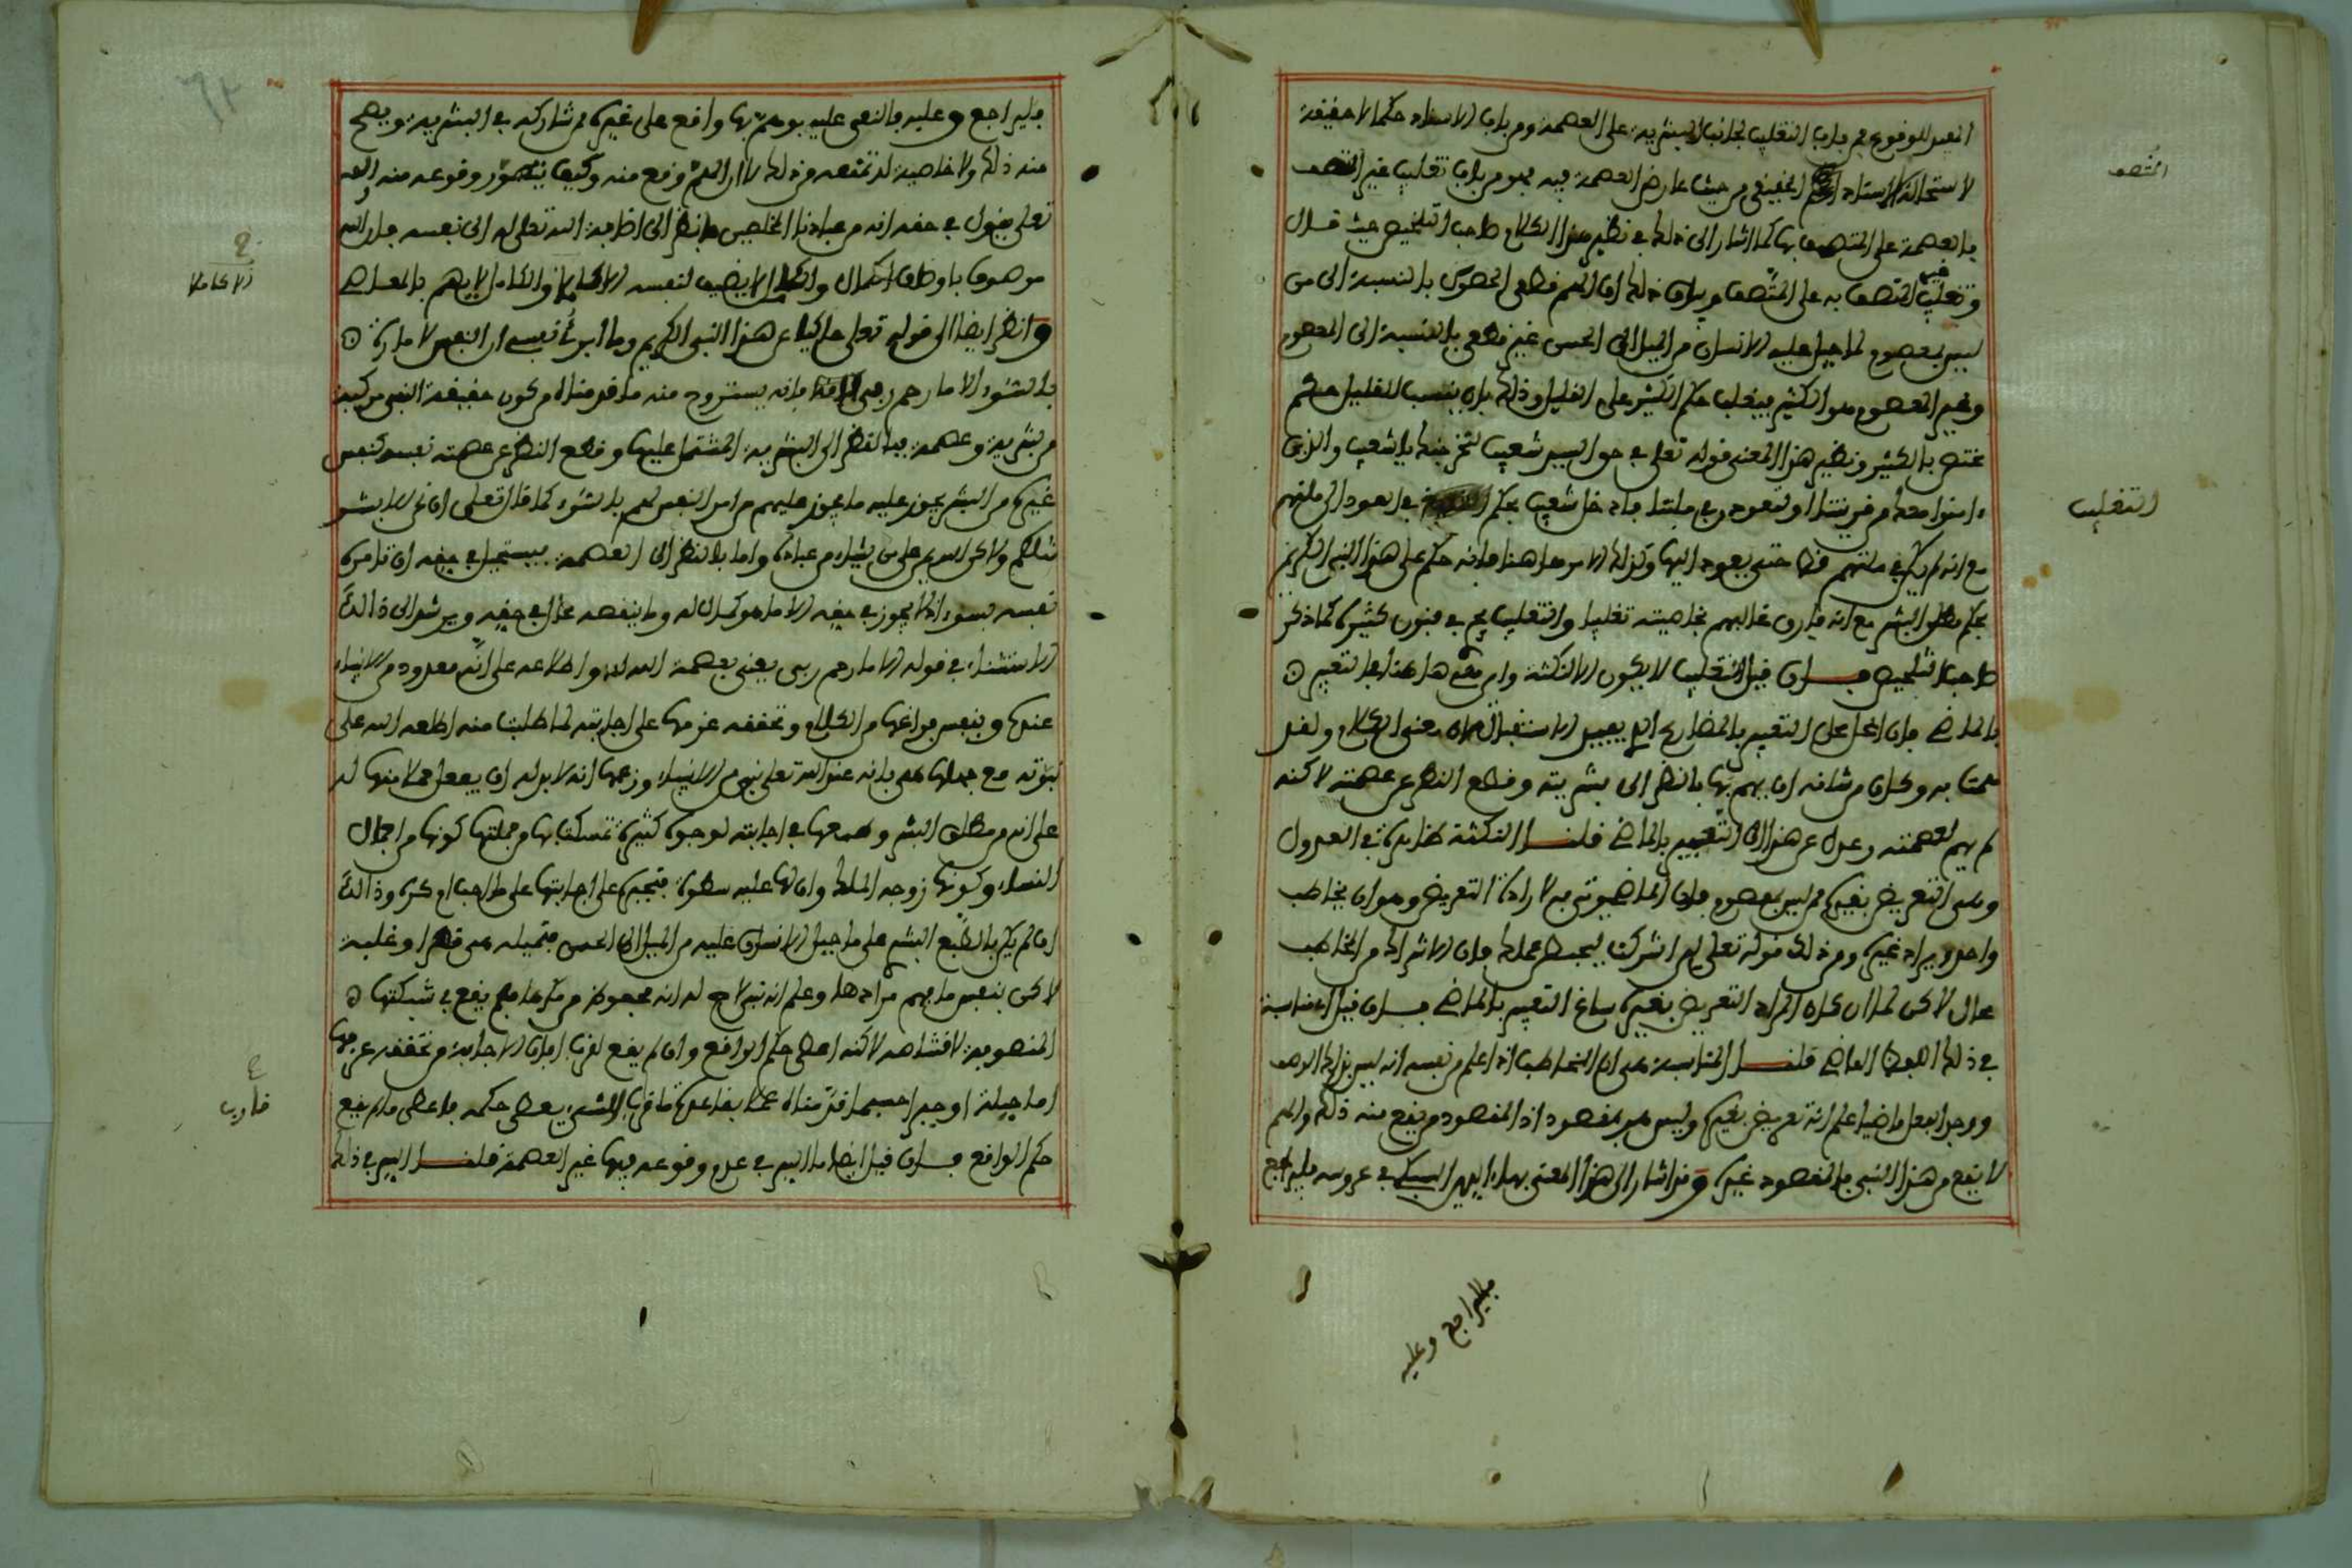 المفيد للوقوع من باب التغليب لجانب البشرية على العصمة ومن باب الاسناد حكما لا حقيقة
لاستحالة الاسناد الحقيقي من حيث عارض العصمة فيه فهو من باب تغليب غير المتصف
المتصف
بالعصمة على المتصف بها كما اشار الى ذلك في نظير هذا الكلام صاحب التلخيص حيث قال
وتغليب غير المتصف به على المتصف وبيان ذلك ان الهم قطعي الحصول بالنسبة الى من
ليس بمعصوم لما جبل عليه الانسان من الميل الى الحسن غير قطعي بالنسبة الى المعصوم
وغير المعصوم هو الكثير فيغلب حكم الكثير على القليل وذلك بان ينسب للقليل حكم
مختص بالكثير ونظير هذا المعنى قوله تعالى في حق السيد شعيب لنخرجنك يا شعيب والذين
ءامنوا معك من قريتنا او لتعودن في ملتنا فادخل شعيب بحكم التغليب في العود الى ملتهم
التغليب
مع انه لم يكن في ملتهم قط حتى يعود اليها وكذلك الامر ها هنا فانه حكم على هذا النبي الكريم
بحكم مطلق البشر مع انه فارق غالبهم بخاصيته تغليبا والتغليب يجري في فنون كثيرة كما ذكر
صاحب التلخيص فان قيل التغليب لا يكون الا لنكتة واين هي ها هنا في التعبير
بالماضي فان المحل محل التعبير بالمضارع الذي يفيد الاستقبال لان معنى الكلام ولقد
همت به وكان من شانه ان يهم بها بالنظر الى بشريته وقطع النظر عن عصمته لاكنه
لم يهم لعصمته وعدل عن هذا الى التعبير بالماضي قلنا النكتة ظاهرة في العدول
وهي التعريض بغيره ممن ليس بمعصوم فان الماضي يوتى به لارادة التعريض وهو ان يخاطب
واحد ويراد غيره ومن ذلك قوله تعالى لئن اشركت ليحبطن عملك فان الاشراك من المخاطب
محال لاكن لما ان كان المراد التعريض بغيره ساغ التعبير بالماضي فان قيل اي مناسبة
في ذلك الفعل الماضي قلنا المناسبة هي ان المخاطب اذا علم من نفسه انه ليس بذلك الوصف
ووجد الفعل ماضيا علم انه تعريض بغيره وليس هو بمقصود اذ المقصود من يقع منه ذلك والهم
لا يقع من هذا النبي فالمقصود غيره وقد اشار الى هذا المعنى بهاء الدين السبكي في عروسه فليراجع
فليراجع وعليه
فليراجع وعليه فالنعي عليه بوهم بها واقع على غيره ممن شاركه في البشرية ويصح
منه ذلك ولا خاصية له تمنعه من ذلك لا ان الهم وقع منه وكيف يتصور وقوعه منه والله
تعالى يقول في حقه انه من عبادنا المخلصين فانظر الى اضافة الله تعالى له الى نفسه فان الله
موصوف باوصاف الكمال والكامل لا يضيف لنفسه الا كاملا والكامل لا يهم بالمعاصي
الا كاملا
وانظر ايضا الى قوله تعالى حاكيا عن هذا النبي الكريم وما ابرئ نفسي ان النفس لامارة
بالسوء الا ما رحم ربي فانه يستروح منه ما قدمناه من كون حقيقة النبي مركبة
من بشرية وعصمة فبالنظر الى البشرية المشتمل عليها وقطع النظر عن عصمته نفسه كنفس
غيره من البشر يجوز عليه ما يجوز عليهم من امر النفس لهم بالسوء كما قال تعالى ان نحن الا بشر
مثلكم ولاكن الله يمن على من يشاء من عباده واما بالنظر الى العصمة فيستحيل في حقه ان تامره
نفسه بسوء اذ لا يجوز في حقه الا ما هو كمال له وما ينقصه محال في حقه ويرشد الى ذالك
الاستثناء في قوله الا ما رحم ربي يعني بعصمة الله له واطلاعه على انه معدود من الانبياء
عنده وبنفس فراغها من الكلام وتحققه عزمها على اجابته لما طلبت منه اطلعه الله على
نبوته مع جهلها هي بانه عند الله تعالى نبي من الانبياء وزعمها انه لا بد له ان يفعل حملا منها له
على انه من مطلق البشر وطمعها في اجابته لوجوه كثيرة تمسكت بها ومن جملتها كونها من اجمل
النساء وكونها زوجة الملك وان لها عليه سطوة فتجبره على اجابتها على ما احب او كره وذالك
ان لم يكن بالطبع البشري على ما جبل الانسان عليه من الميل الى الحسن فتميله هي قهرا وغلبة
لاكن بنفس ما فهم مرادها وعلم انه نبي لاح له انه محفوظ من مكرها فلم يقع في شبكتها
المنصوبة لاقتناصه لاكنه اعطي حكم الواقع وان لم يقع لقرب ابان الاجابة من تحققه عزمها
اما جبلة او جبرا حسبما قدمناه عملا بقاعدة ما قارب الشيء يعطى حكمه فاعطي ما لم يقع
قارب
حكم الواقع فان قيل ايضا ما السر في عدم وقوعه فيها غير العصمة قلنا السر في ذلك